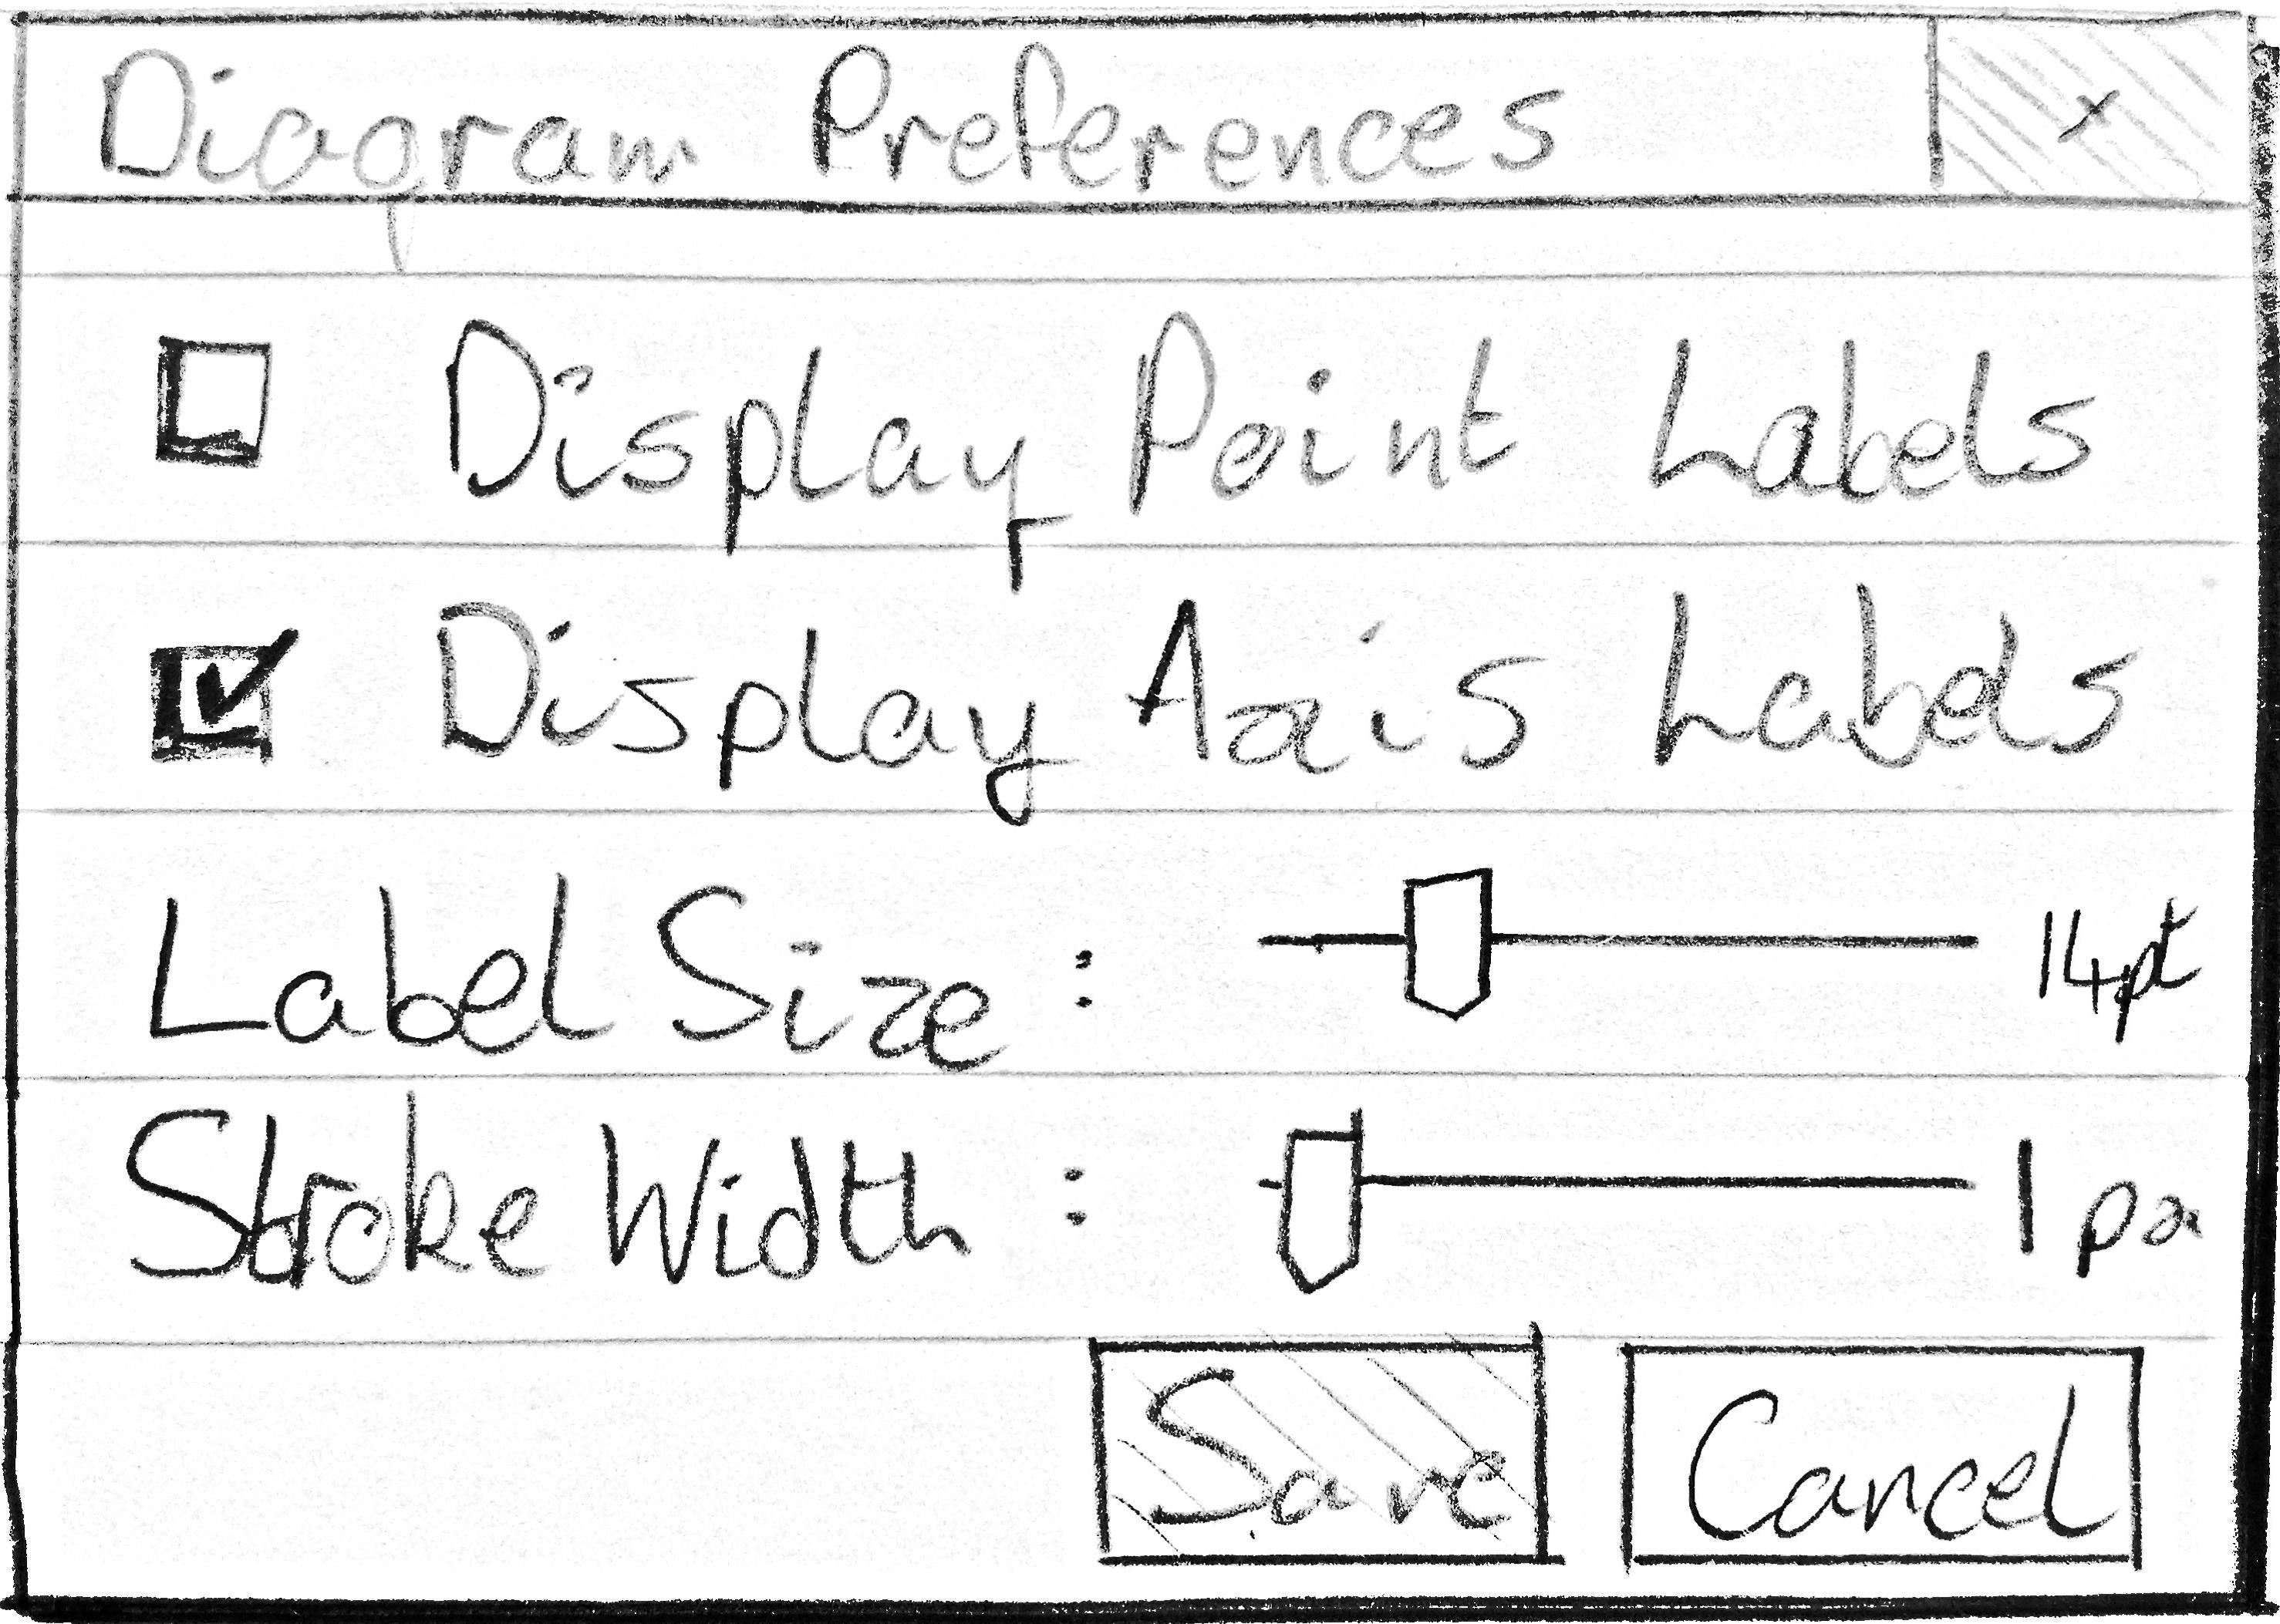 Diagram Preferences x
Display Point Labels
Display Axis Labels
Label Size : 14pt
Stroke Width : 1 px
Save Cancel